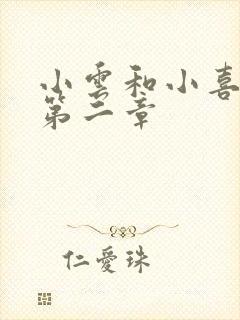 小雲和小喜
第二章
仁愛珠